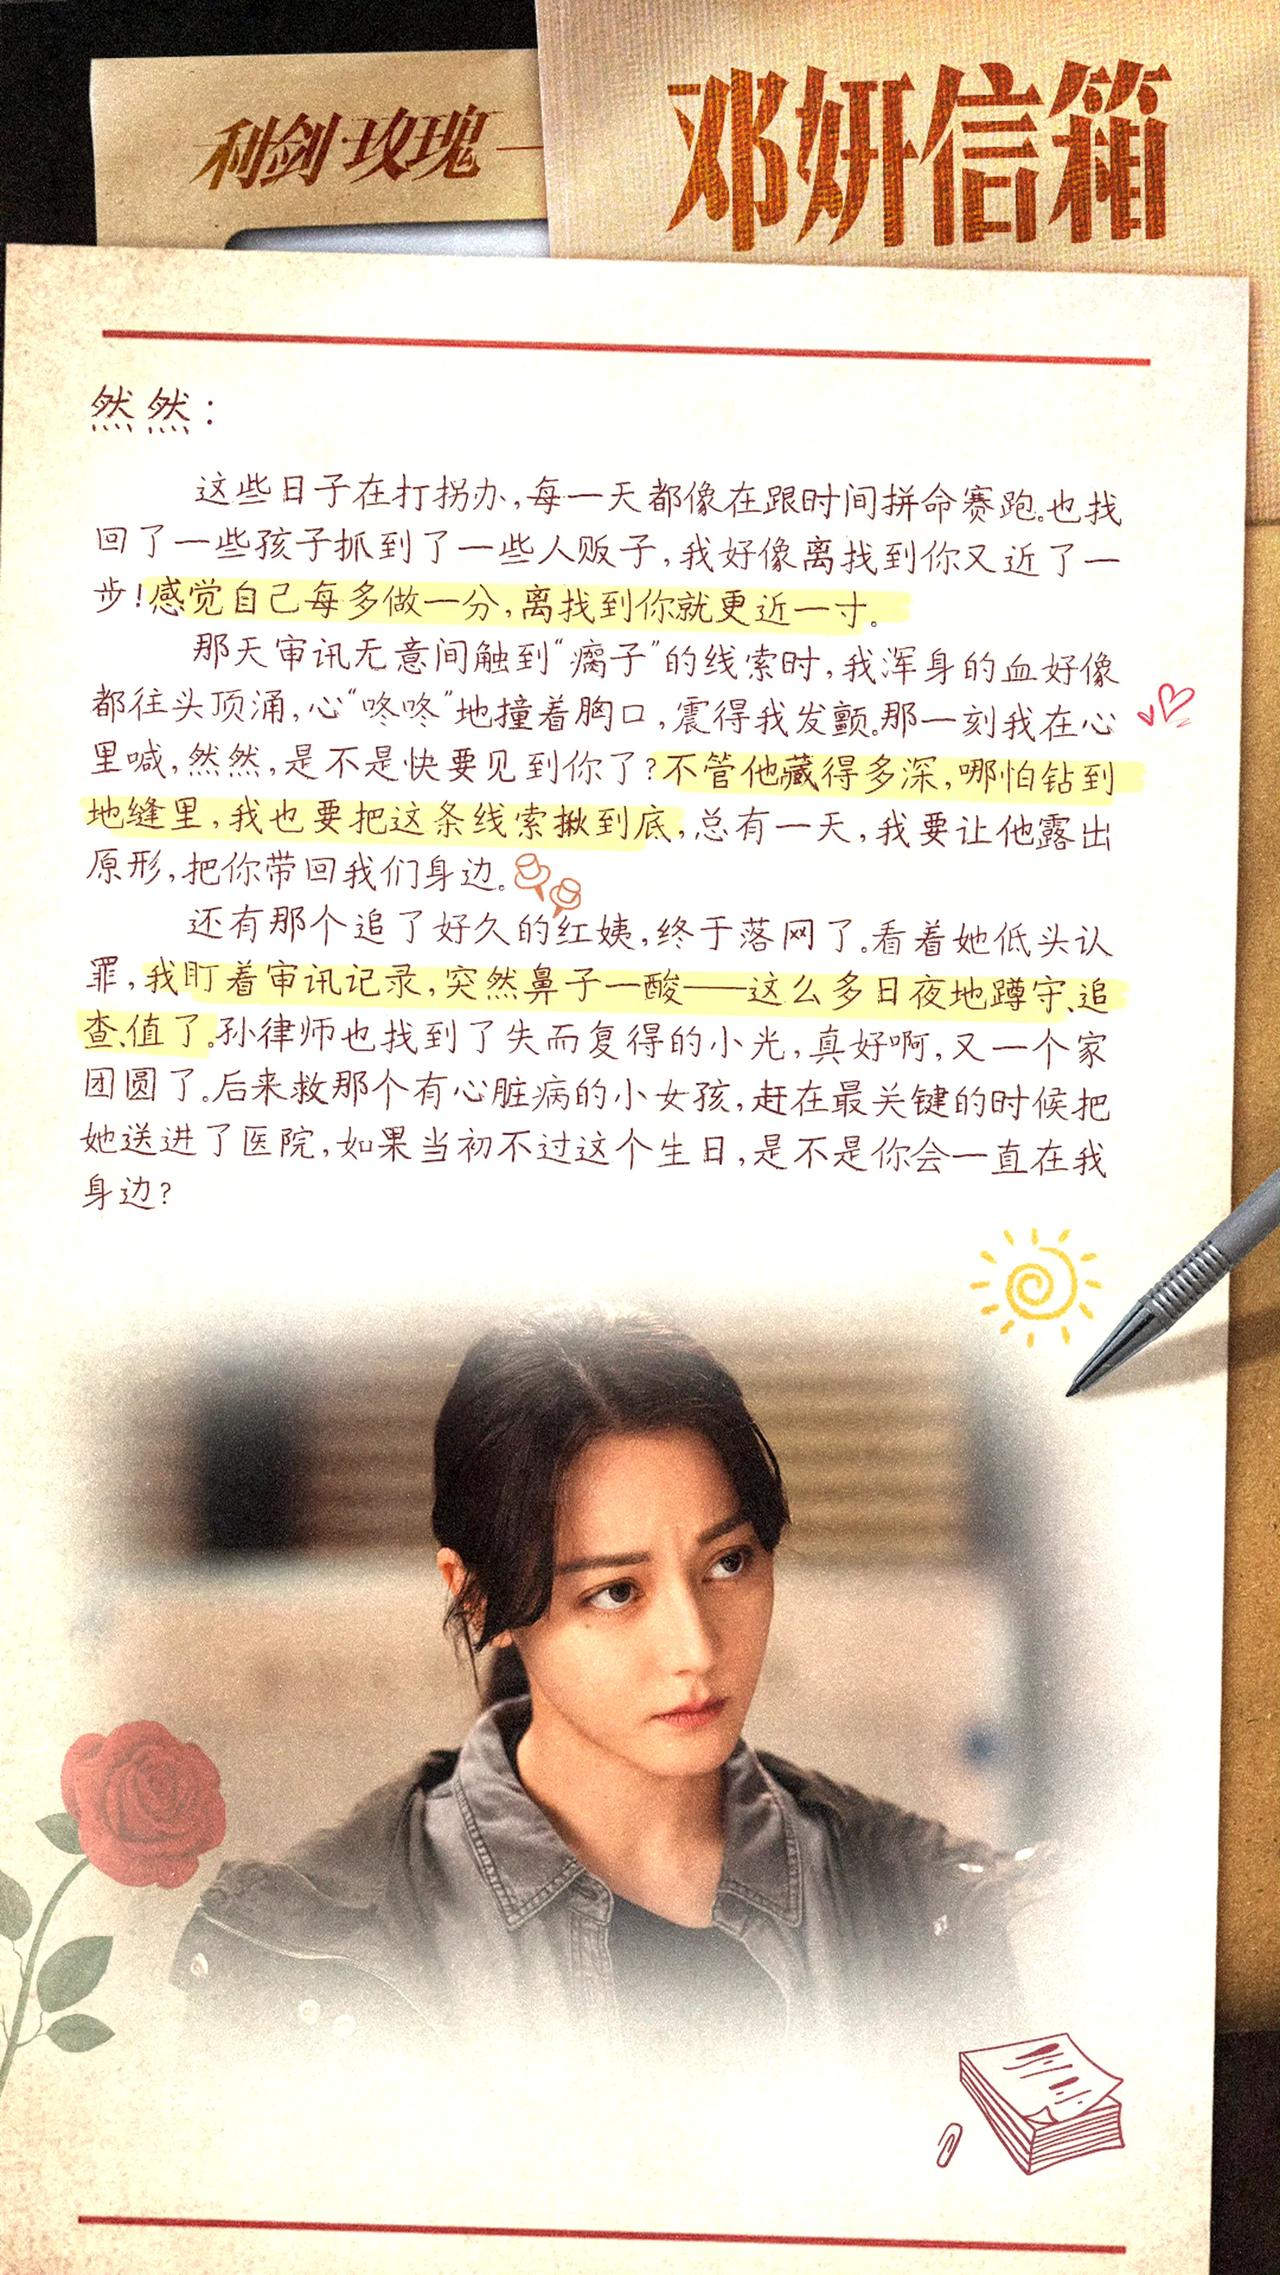 利剑·玫瑰
邓妍信箱
然然：
这些日子在打拐办，每一天都像在跟时间拼命赛跑。也找
回了一些孩子抓到了一些人贩子，我好像离找到你又近了一
步！感觉自己每多做一分，离找到你就更近一寸。
那天审讯无意间触到“瘸子”的线索时，我浑身的血好像
都往头顶涌，心“咚咚”地撞着胸口，震得我发颤。那一刻我在心
里喊，然然，是不是快要见到你了？不管他藏得多深，哪怕钻到
地缝里，我也要把这条线索揪到底，总有一天，我要让他露出
原形，把你带回我们身边。
还有那个追了好久的红姨，终于落网了。看着她低头认
罪，我盯着审讯记录，突然鼻子一酸——这么多日夜地蹲守、追
查、值了。孙律师也找到了失而复得的小光，真好啊，又一个家
团圆了。后来救那个有心脏病的小女孩，赶在最关键的时候把
她送进了医院，如果当初不过这个生日，是不是你会一直在我
身边？